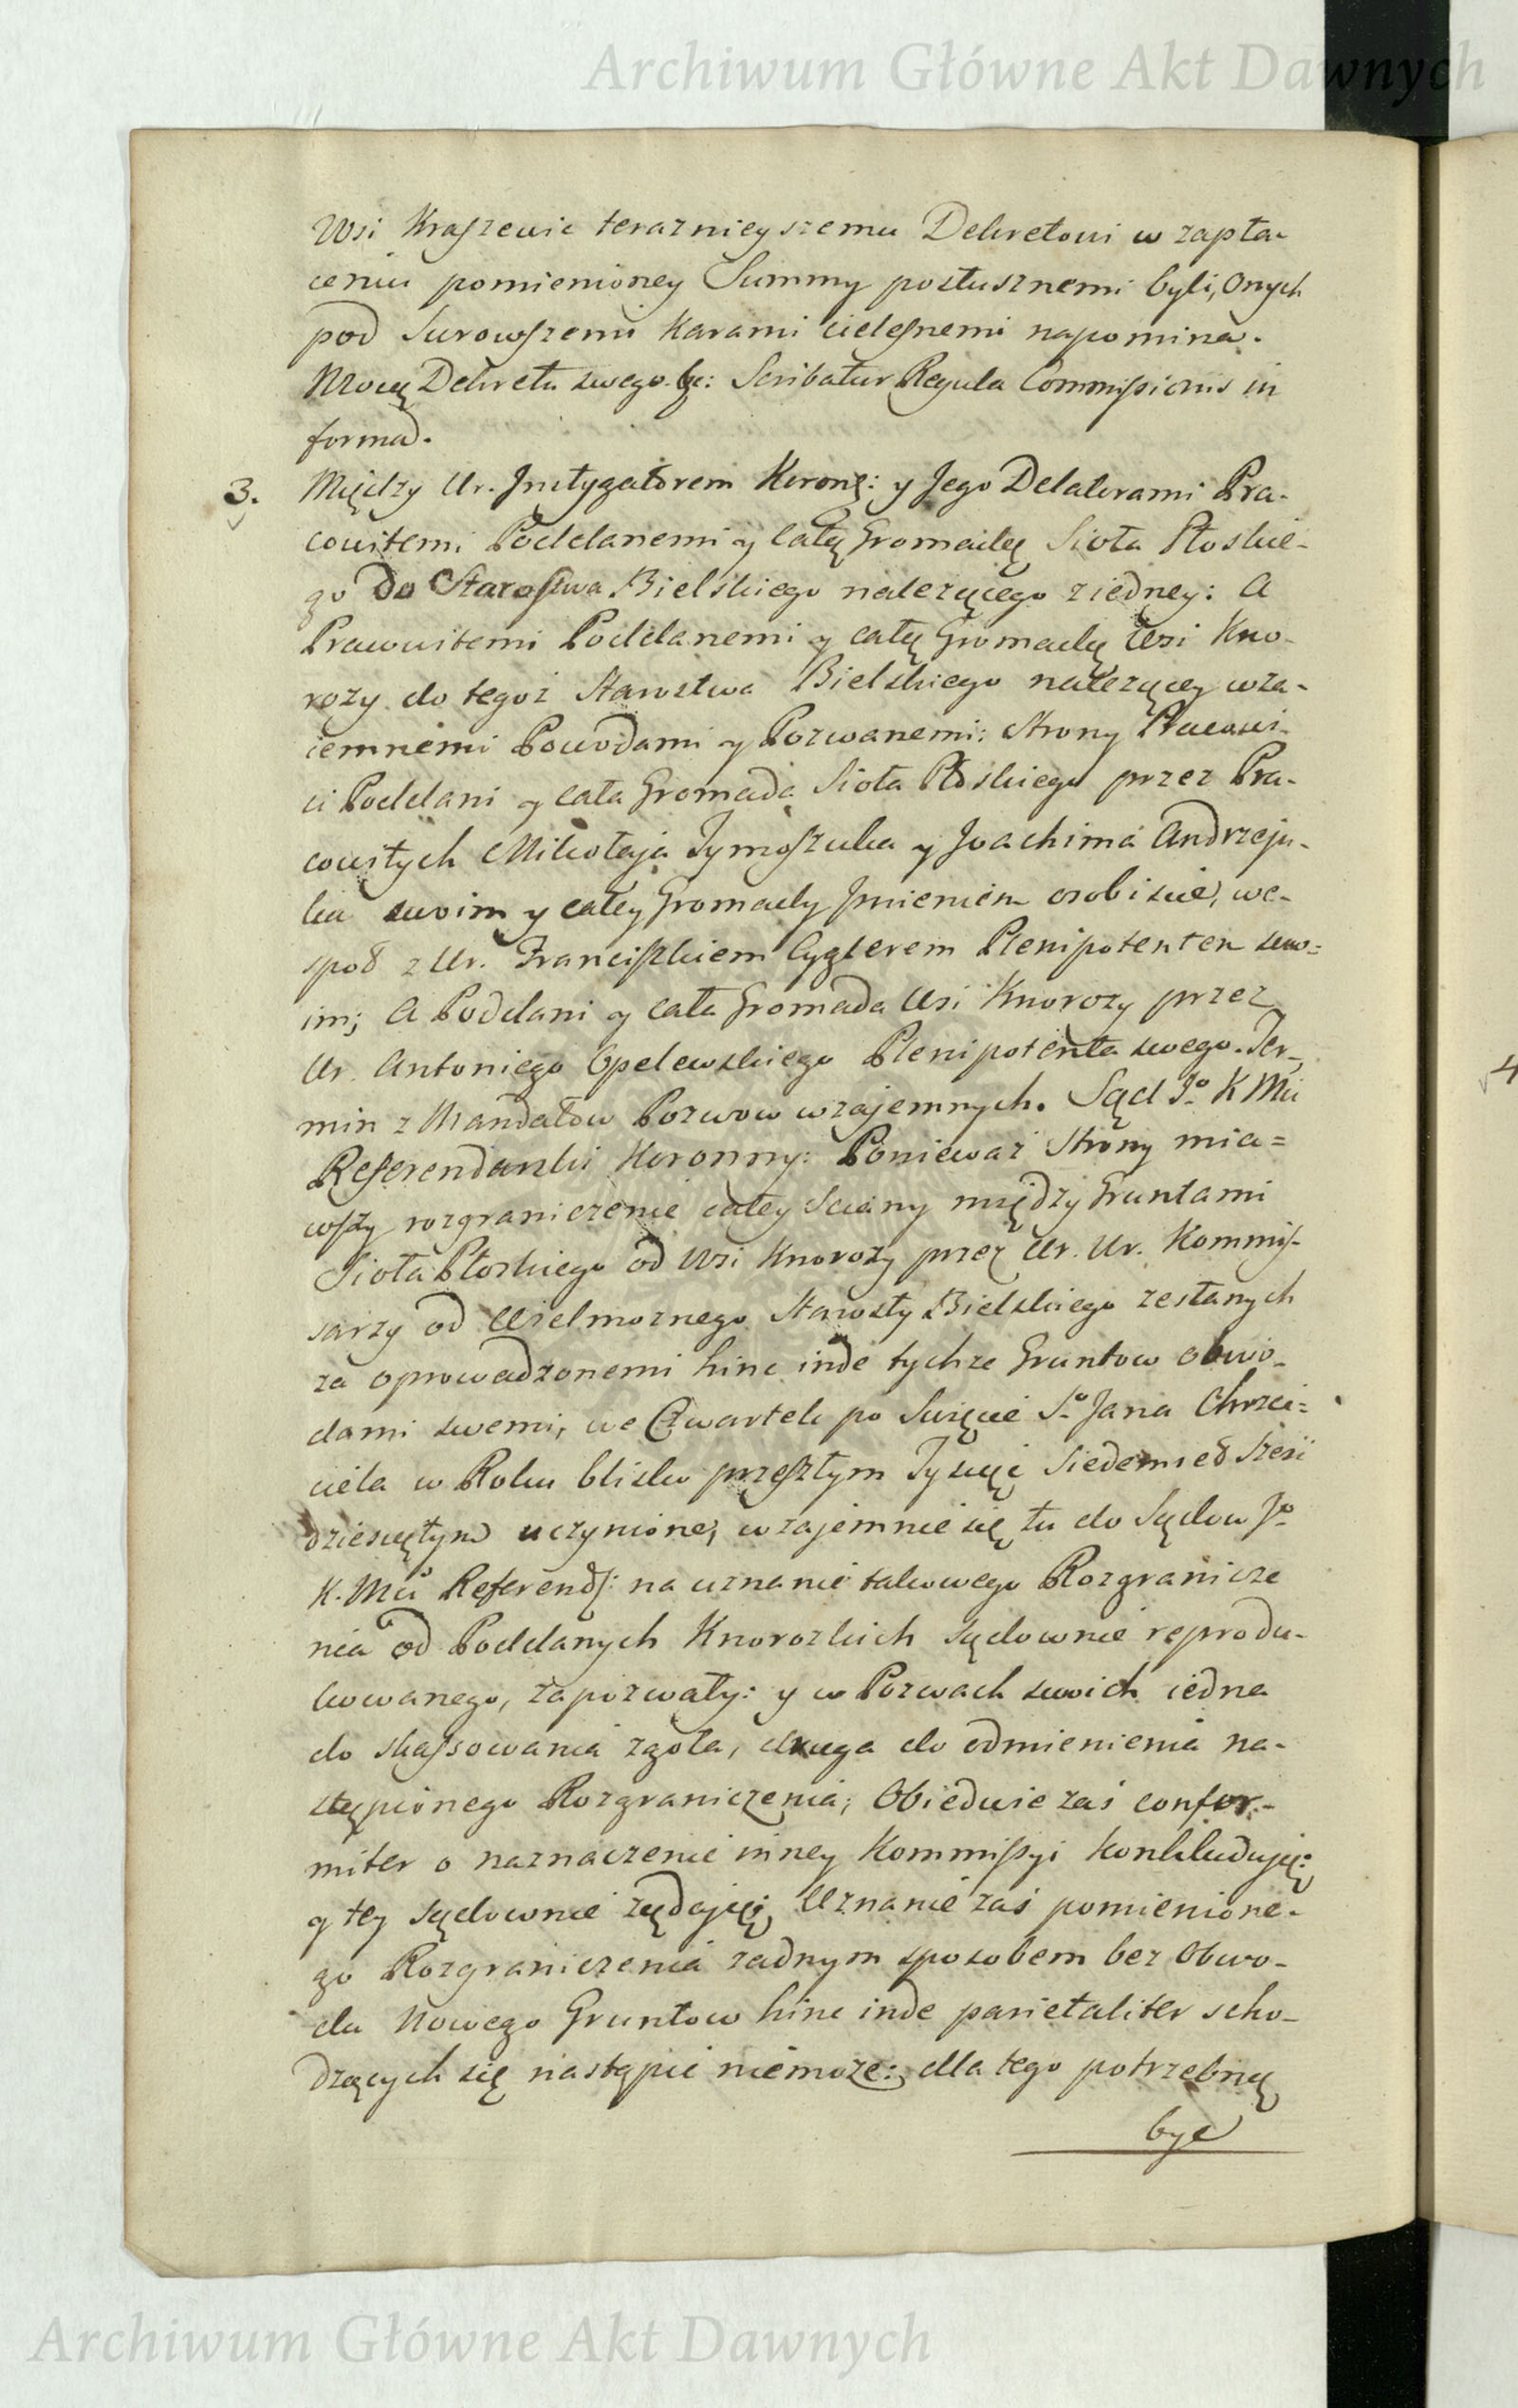 Archiwum Główne Akt Dawnych
Wsi Kraszewic teraznieyszemu Dekretowi w zapła-
ceniu pomienioney Summy posłusznemi byli, onych
pod surowszemi karami cielesnemi napomina.
Mocą Dekretu swego. &c: Scribatur Regula Commissionis in
forma.
3. Między Ur. Instygatorem Koronę: y Jego Delatorami Pra-
cowitemi Poddanemi y całą Gromadą Sioła Ploskie-
go do Starostwa Bielskiego należącego z iedney: A
Pracowitemi Poddanemi y całą Gromadą Wsi Kno-
rozy do tegoż Starostwa Bielskiego należącey wza-
iemnemi Powodami y Pozwanemi: Strony Pracowi-
ci Poddani y cała Gromada Sioła Ploskiego przez Pra-
cowitych Mikołaja Tymoszuka y Joachima Andrzeju-
ka swoim y całey Gromady Jmieniem osobiscie, we-
społ z Ur. Franciszkiem Cyglerem Plenipotentem swo-
im; A Poddani y cała Gromada Wsi Knorozy przez
Ur. Antoniego Opelewskiego Plenipotenta swego. Ter-
min z Mandatow Pozwow wzajemnych. Sąd Jo K Mci
Referendarski Koronny: Ponieważ Strony mia-
wszy rozgraniczenie całey Sciany między Gruntami
Sioła Ploskiego od Wsi Knorozy przez Ur. Ur. Kommis-
sarzy od Wielmoznego Starosty Bielskiego zesłanych
za oprowadzonemi hinc inde tychze Gruntow obwo-
dami swemi, we Czwartek po Swięcie So Jana Chrzci-
ciela w Roku blisko przeszłym Tysiąc Siedemset Szesć
dziesiętym uczynione, wzajemnie się tu do Sądow Jo
K. Mci Referend: na uznanie takowego Rozgranicze
nia od Poddanych Knorozkich sądownie reprodu-
kowanego, zapozwały: y w Pozwach swoich iedna
do skassowania zgoła, druga do odmienienia na-
stąpionego Rozgraniczenia; Obiedwie zaś confor-
miter o naznaczenie inney Kommissyi konkludują:
y tey sądownie żądają; Uznanie zaś pomienione-
go Rozgraniczenia żadnym sposobem bez Obwo-
du Nowego Gruntow hinc inde parietaliter scho-
dzących się nastąpić niemoże: dla tego potrzebną
być
4
Archiwum Główne Akt Dawnych